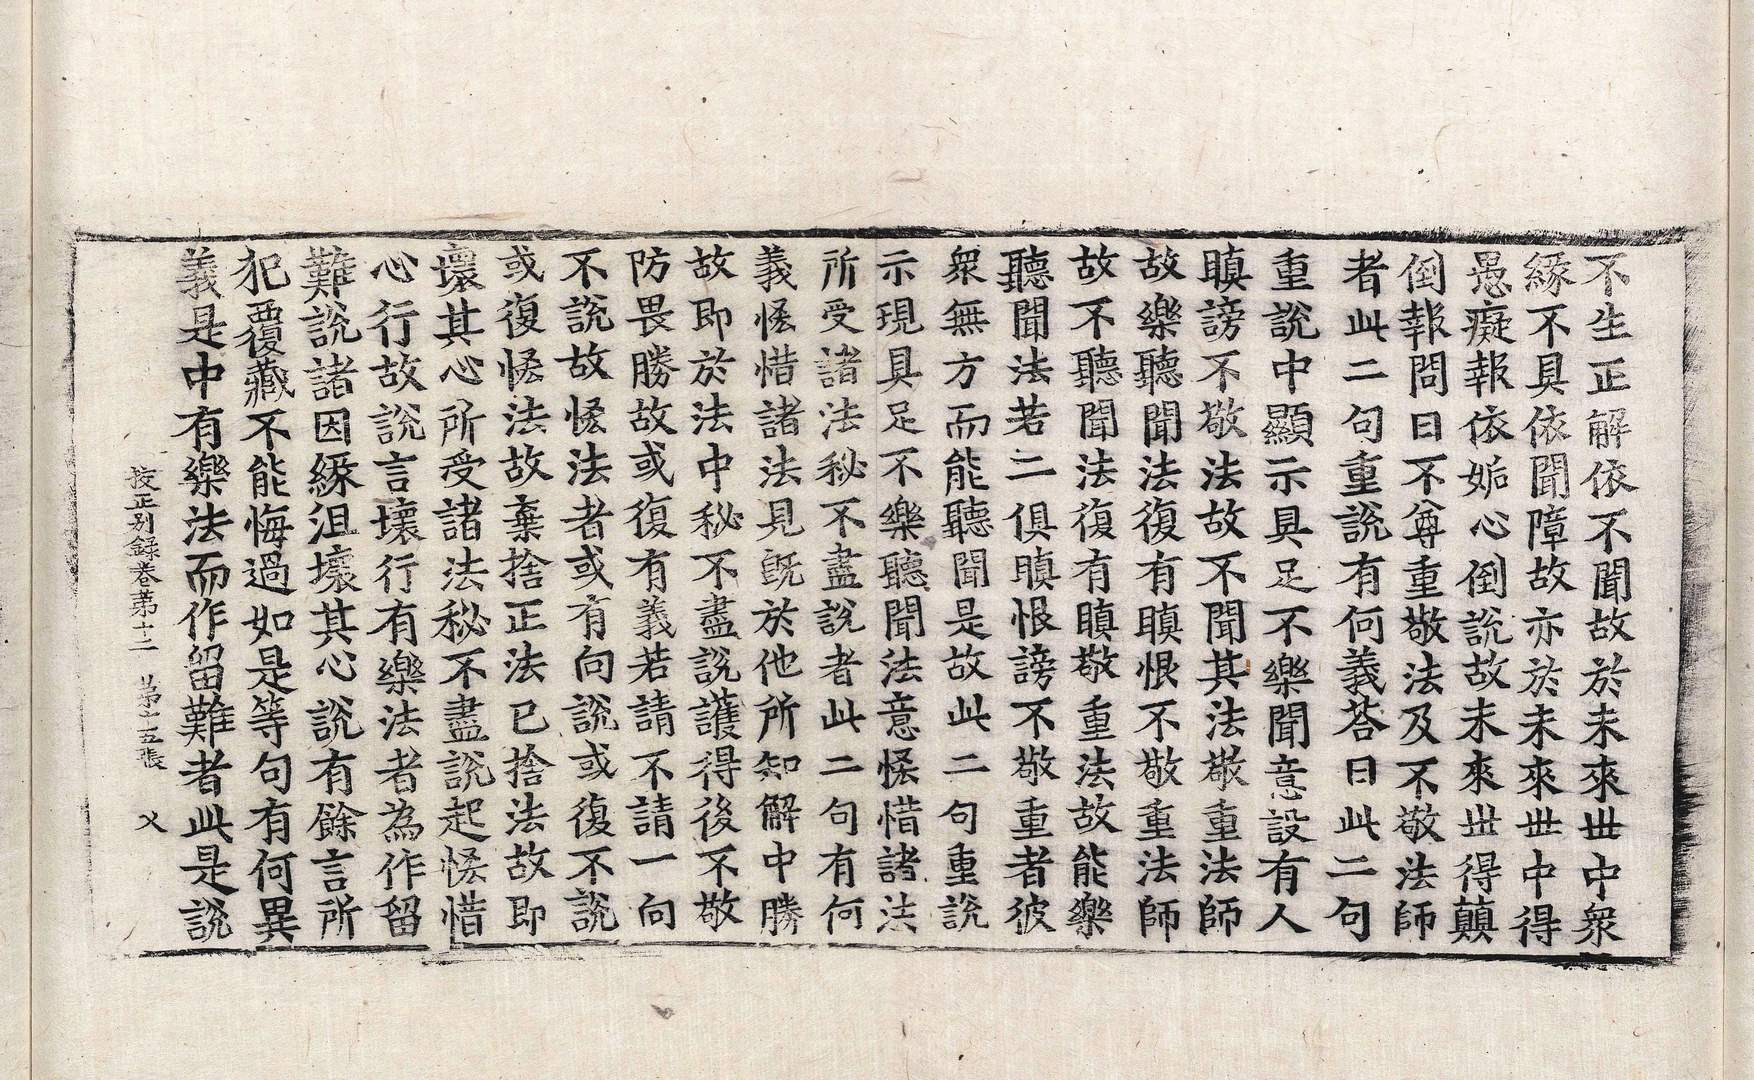 不生正解依不聞故於未來世中衆
緣不具依聞障故亦於未來世中得
愚癡報依姤心倒說故未來世得顛
倒報問曰不尊重敬法及不敬法師
者此二句重說有何義荅曰此二句
重說中顯示具足不樂聞意設有人
瞋謗不敬法故不聞其法敬重法師
故樂聽聞法復有瞋恨不敬重法師
故不聽聞法復有瞋敬重法故能樂
聽聞法若二俱瞋恨謗不敬重者彼
衆無方而能聽聞是故此二句重說
示現具足不樂聽聞法意悋惜諸法
所受諸法秘不盡說者此二句有何
義悋惜諸法見旣於他所知解中勝
故即於法中秘不盡說護得後不敬
防畏勝故或復有義若請不請一向
不說故悋法者或有向說或復不說
或復悋法故棄捨正法已捨法故即
壞其心所受諸法秘不盡說起悋惜
心行故說言壞行有樂法者為作留
難說諸因緣沮壞其心說有餘言所
犯覆藏不能悔過如是等句有何異
義是中有樂法而作留難者此是說
挍正別錄卷苐十二　苐十五張　乂